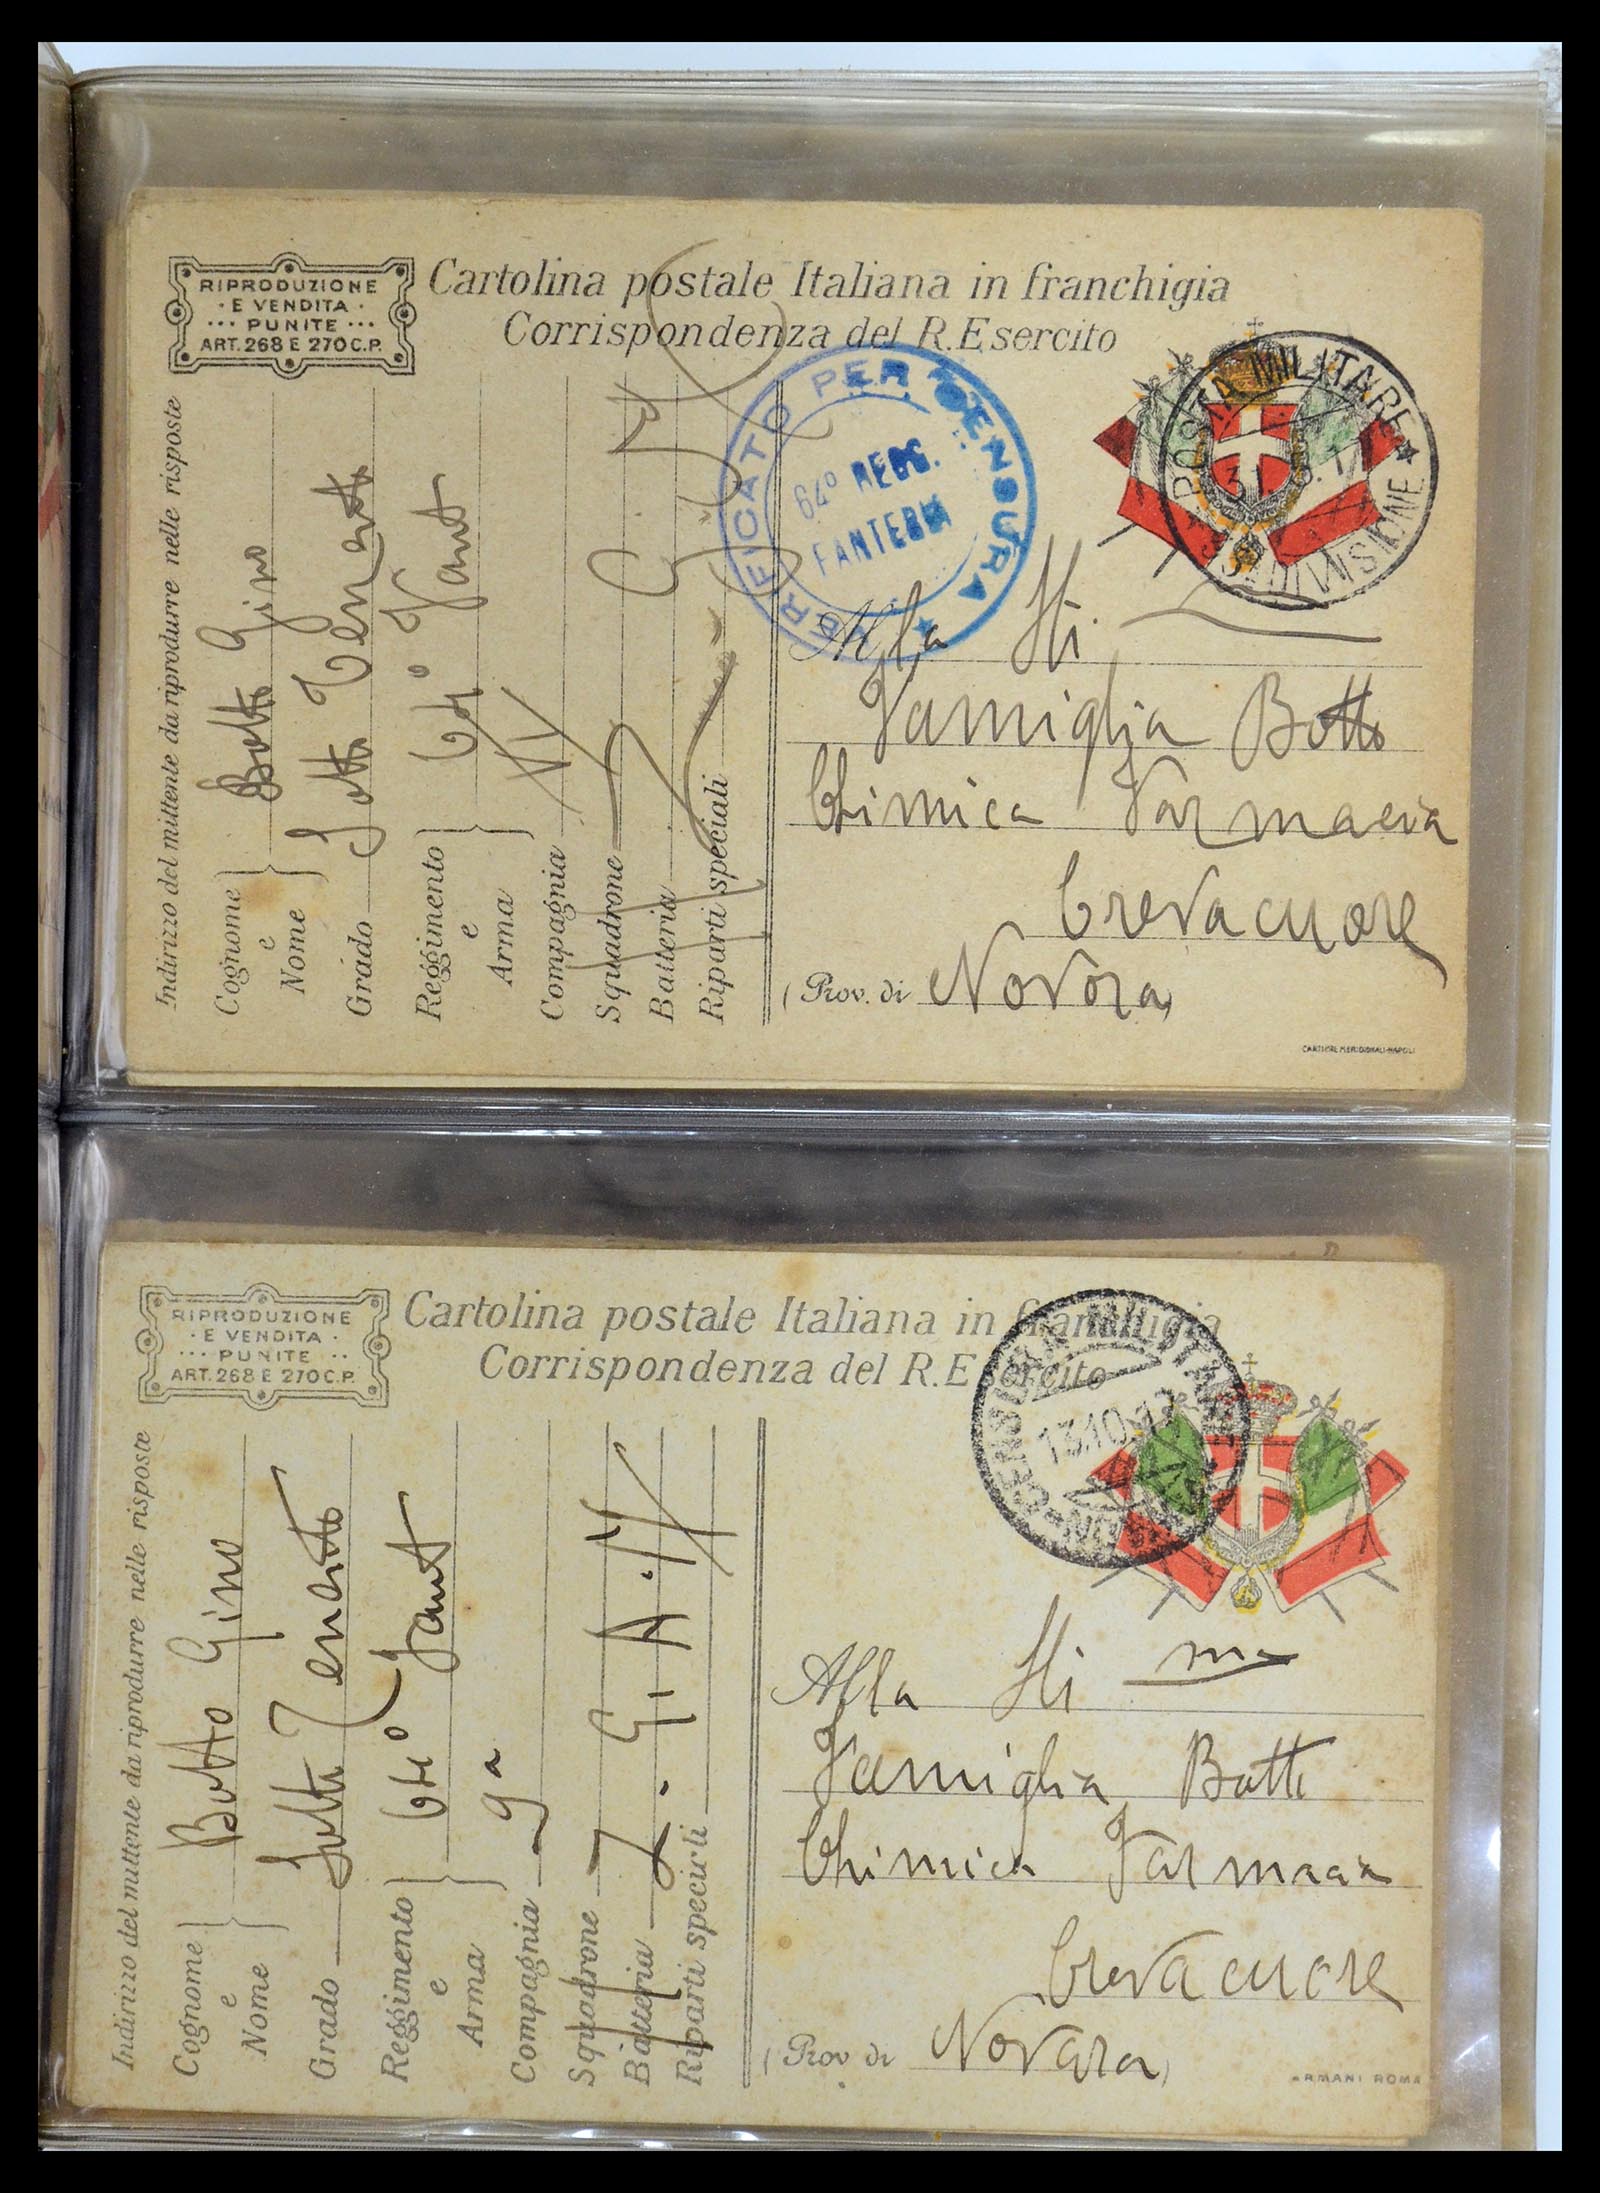 RIPRODUZIONE
· E VENDITA ·
··· PUNITE ···
ART. 268 E 270 C.P.
Cartolina postale Italiana in franchigia
Corrispondenza del R. Esercito
Indirizzo del mittente da riprodurre nelle risposte
Cognome e Nome Botto Gino
Grado Sotto Tenente
Reggimento e Arma 64° Fant
Compagnia
Squadrone
Batteria
Riparti speciali
VERIFICATO PER CENSURA
64° REGG.
FANTERIA
POSTA MILITARE
DIVISIONE
Alla
Famiglia Botto
Chimica Farmacia
Crevacuore
(Prov. di Novara)
CARTIERE MERIDIONALI-NAPOLI
RIPRODUZIONE
· E VENDITA ·
··· PUNITE ··
ART. 268 E 270 C.P.
Cartolina postale Italiana in franchigia
Corrispondenza del R. Esercito
Indirizzo del mittente da riprodurre nelle risposte
Cognome e Nome Botto Gino
Grado Sotto Tenente
Reggimento e Arma 64° Fant
Compagnia 9a
Squadrone
Batteria
Riparti speciali
CENSURA MILITARE
13.10.17
Alla
Famiglia Botto
Chimica Farmacia
Crevacuore
(Prov. di Novara)
ARMANI ROMA